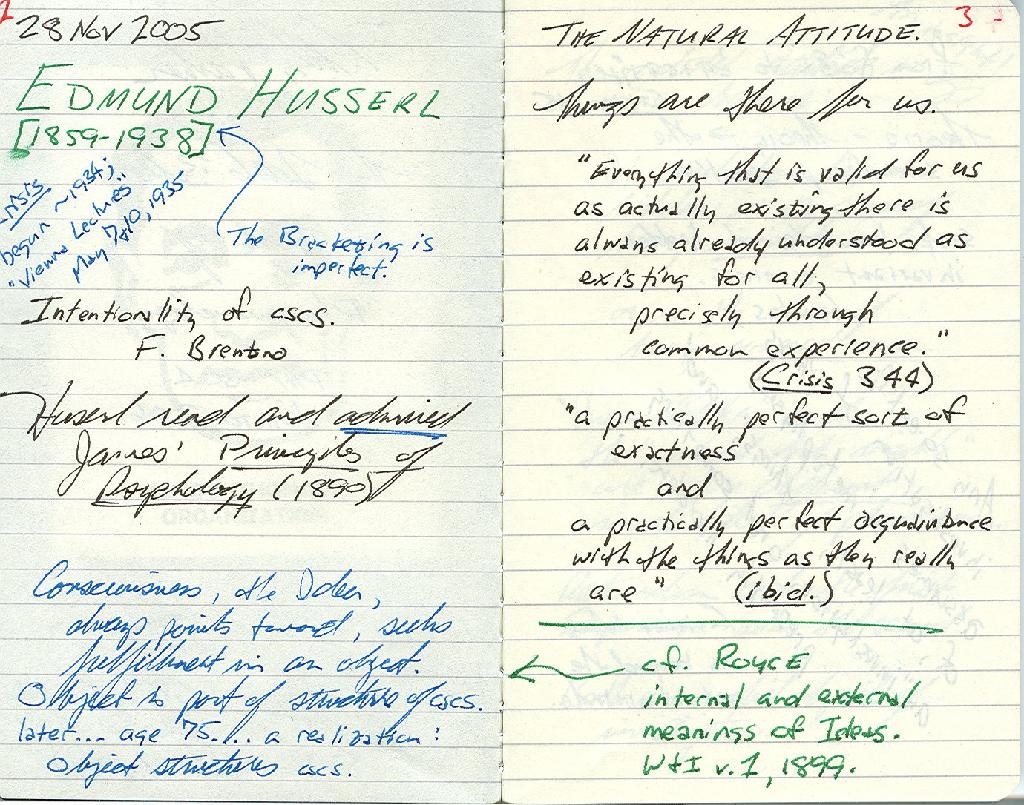 28 Nov 2005
EDMUND HUSSERL
[1859-1938]
Crisis
begun ~1934;
"Vienna Lectures"
May 7+10, 1935
The Bracketing is
imperfect.
Intentionality of cscs.
F. Brentano
Husserl read and admired
James' Principles of
Psychology (1890)
Consciousness, the Idea,
always points toward, seeks
fulfillment in an object.
Object is part of structure of cscs.
later... age 75... a realization:
Object structures cscs.
3
THE NATURAL ATTITUDE.
things are there for us.
"Everything that is valid for us
as actually existing there is
always already understood as
existing for all,
precisely through
common experience."
(Crisis 344)
"a practically perfect sort of
exactness
and
a practically perfect acquaintance
with the things as they really
are" (Ibid.)
cf. ROYCE
internal and external
meanings of Ideas.
W+I v.1, 1899.